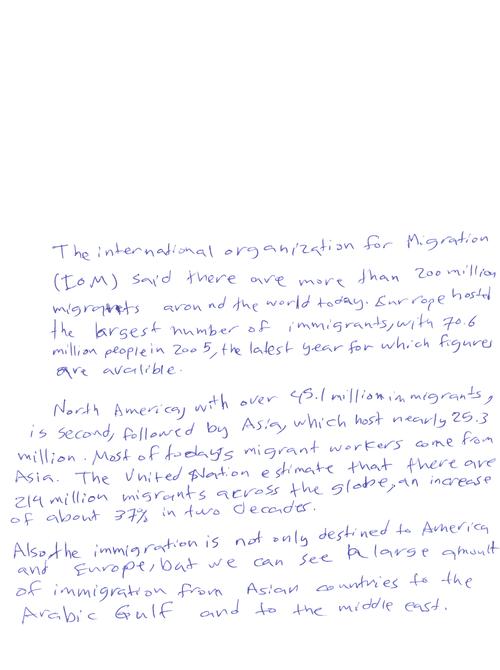 The international organization for Migration
(IOM) said there are more than 200 million
migrants arround the world today. Eurrope hosted
the largest number of immigrants, with 70.6
million people in 2005, the latest year for which figures
are availible.
North America, with over 45.1 million immigrants,
is second, followed by Asia, which host nearly 25.3
million. Most of todays migrant workers come from
Asia. The United Nation estimate that there are
214 million migrants across the globe, an increase
of about 37% in two decades.
Also, the immigration is not only destined to America
and Europe, but we can see a large amount
of immigration from Asian countries to the
Arabic Gulf and to the middle east.